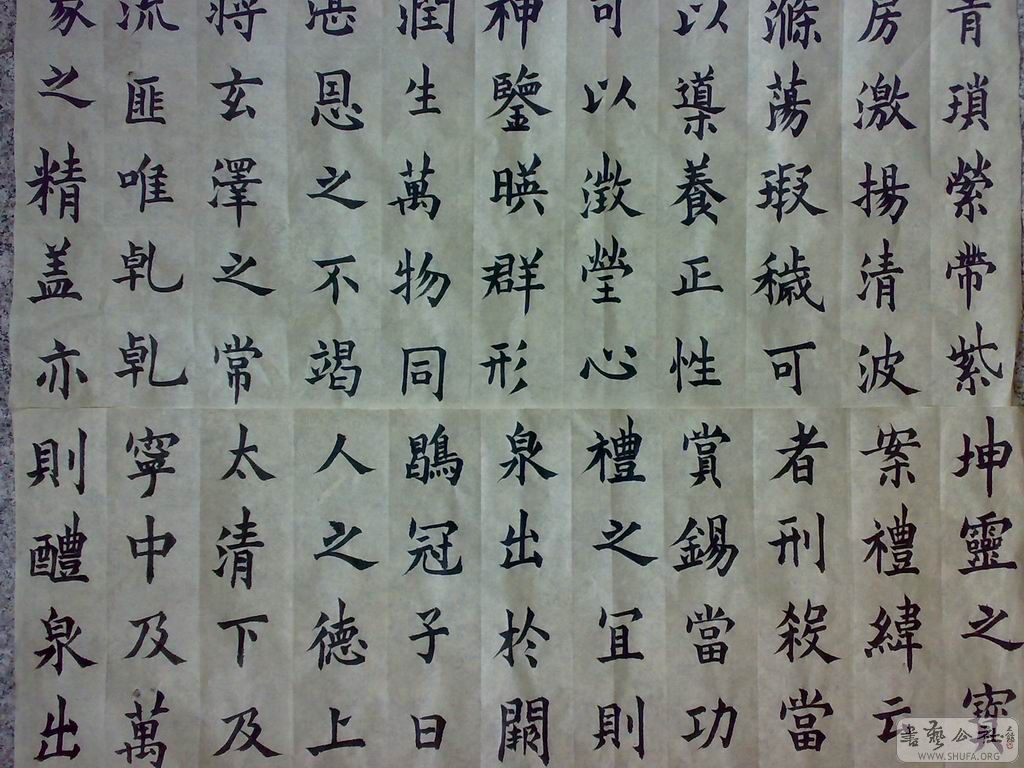 青瑣縈帶紫
房激揚清波
滌蕩瑕穢可
以導養正性
可以澂瑩心
神鑒暎群形
潤生萬物同
湛恩之不竭
將玄澤之常
流匪唯乹乹
象之精盖亦
坤靈之寶
案禮緯云
者刑殺當
賞錫當功
禮之冝則
泉出於闕
鶡冠子曰
人之德上
太清下及
寧中及萬
則醴泉出
書藝公社
WWW.SHUFA.ORG